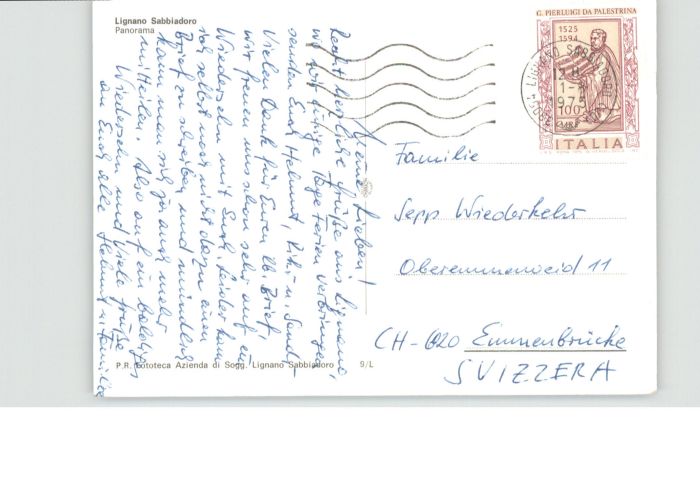 Lignano Sabbiadoro
Panorama
Meine Lieben!
Recht herzliche Grüße aus Lignano,
wo wir einige Tage Ferien verbringen,
senden Euch Helmut,
Vielen Dank für Euren lb. Brief,
wir freuen uns schon sehr auf ein
Wiedersehn mit Euch. Leider kam
ich selbst noch nicht dazu einen
Brief zu schreiben und mündlich
kann man sich ja auch mehr
mitteilen. Also auf ein baldiges
Wiedersehn und viele Grüße
an Euch alle Helmut u. Familie
P.R. Fototeca Azienda di Sogg. Lignano Sabbiadoro 9/L
G. PIERLUIGI DA PALESTRINA
1525
1594
100
ITALIA
LIGNANO SABBIADORO
12 H
1975
Familie
Sepp Wiederkehr
Oberemmenweid 11
CH-6020 Emmenbrücke
SVIZZERA